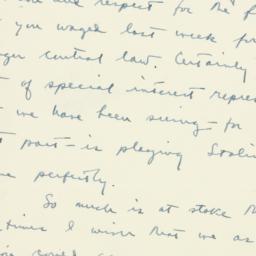 and respect for the f
you waged last week for
ger control law. Certainly
t of special interest repres
we have been seeing — for
t part — is playing Stalin
e perfectly.
So much is at stake th
times I wish that we as
could